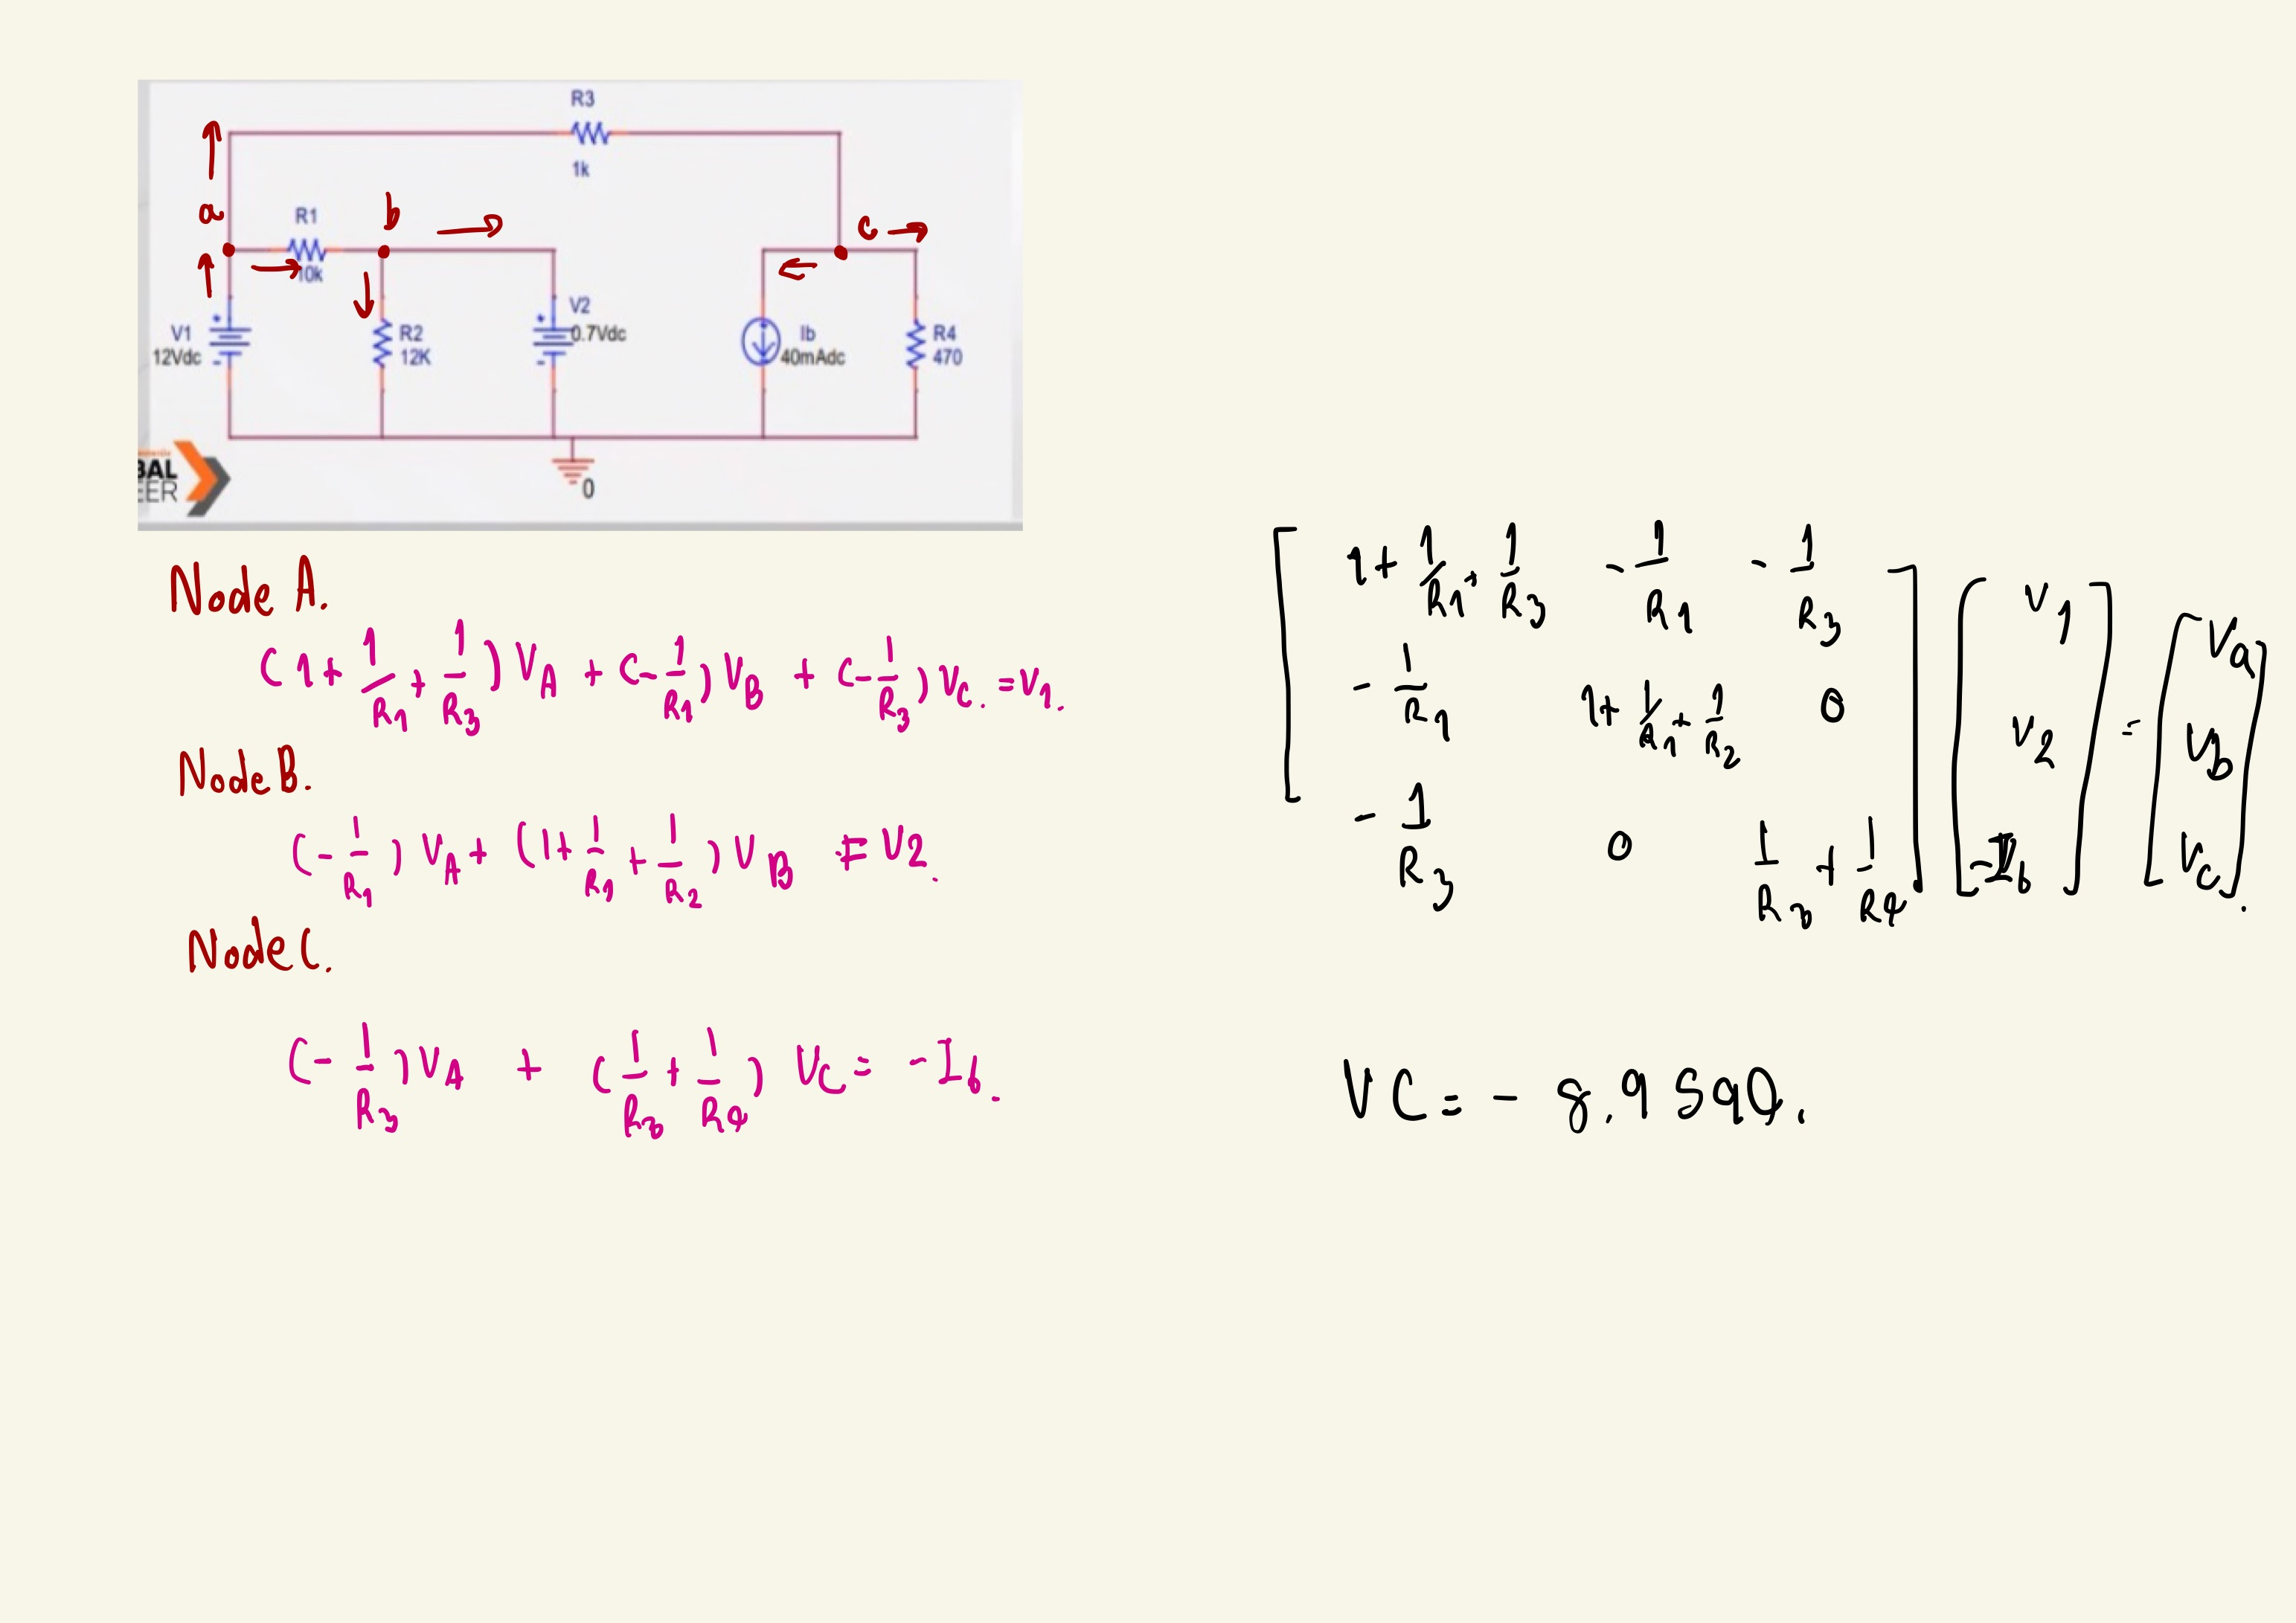 R3
1k
a
R1
b
c
10k
V1
12Vdc
R2
12K
V2
0.7Vdc
Ib
40mAdc
R4
470
BAL
EER
0
Node A.
(1 + 1/R1 + 1/R3) VA + (-1/R1) VB + (-1/R3) VC. = V1.
Node B.
(-1/R1) VA + (1 + 1/R1 + 1/R2) VB = V2.
Node C.
(-1/R3) VA + (1/R3 + 1/R4) VC = -Ib.
[ 1 + 1/R1 + 1/R3   -1/R1   -1/R3 ] [ V1 ] = [ Va ]
[ -1/R1   1 + 1/R1 + 1/R2   0 ] [ V2 ] [ Vb ]
[ -1/R3   0   1/R3 + 1/R4 ] [ -Ib ] [ Vc ].
VC = - 8.9590.